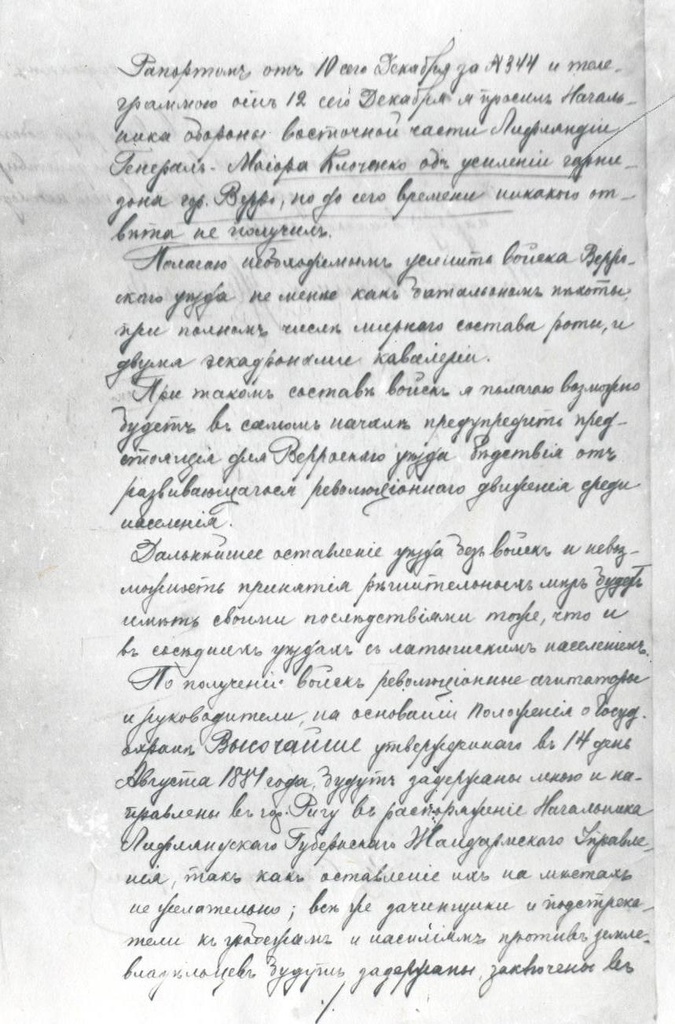 Рапортомъ отъ 10 сего Декабря за №344 и теле-
граммою отъ 12 сего Декабря я просилъ Началь-
ника обороны восточной части Лифляндіи
Генералъ-Маіора Клоченко объ усиленіи гарни-
зона гор. Верро, но до сего времени никакого от-
вѣта не получилъ.
Полагаю необходимымъ усилить войска Верро-
скаго уѣзда не менѣе какъ баталіономъ пѣхоты,
при полномъ числѣ мирнаго состава роты, и
двумя эскадронами кавалеріи.
При такомъ составѣ войскъ я полагаю возможно
будетъ въ самомъ началѣ предупредить пред-
стоящія для Верроскаго уѣзда бѣдствія отъ
развивающагося революціоннаго движенія среди
населенія.
Дальнѣйшее оставленіе уѣзда безъ войскъ и невоз-
можность принятія рѣшительныхъ мѣръ будетъ
имѣть своими послѣдствіями тоже, что и
въ сосѣднихъ уѣздахъ съ латышскимъ населеніемъ.
По полученіи войскъ революціонные агитаторы
и руководители, на основаніи Положенія о Госуд.
охранѣ Высочайше утвержденнаго въ 14 день
Августа 1881 года, будутъ задержаны мною и на-
правлены въ гор. Ригу въ распоряженіе Начальника
Лифляндскаго Губернскаго Жандармскаго Управле-
нія, такъ какъ оставленіе ихъ на мѣстахъ
не желательно; всѣ же зачинщики и подстрека-
тели къ грабежамъ и насиліямъ противъ земле-
владѣльцевъ будутъ задержаны, заключены въ